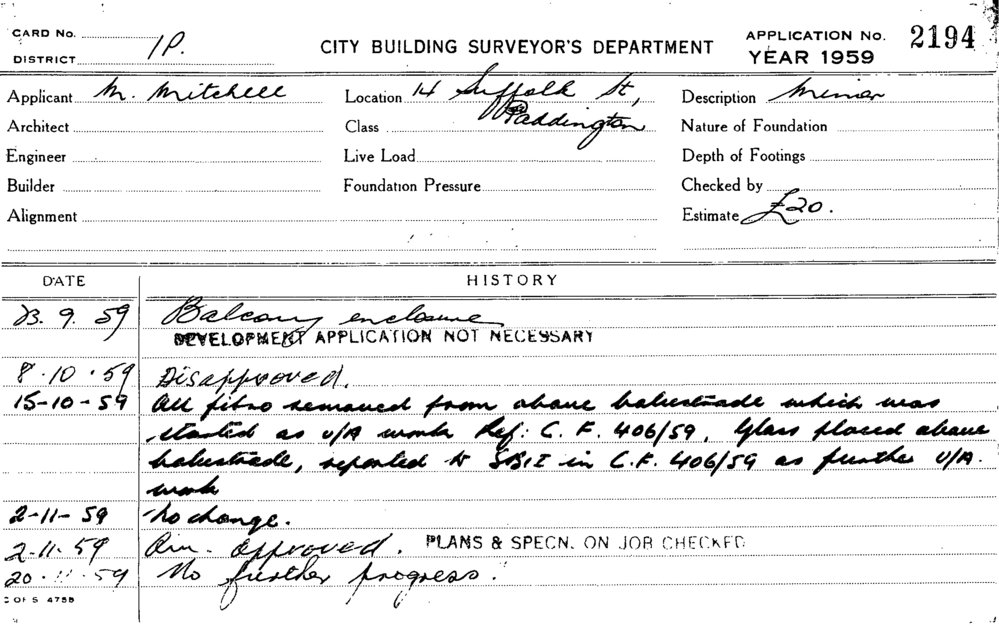 CARD No.
DISTRICT 1P.
CITY BUILDING SURVEYOR'S DEPARTMENT
APPLICATION No. 2194
YEAR 1959
Applicant M. Mitchell
Location 14 Suffolk St,
Paddington
Description Minor
Architect
Class
Nature of Foundation
Engineer
Live Load
Depth of Footings
Builder
Foundation Pressure
Checked by
Alignment
Estimate £20.
DATE HISTORY
23. 9. 59 Balcony enclosure
DEVELOPMENT APPLICATION NOT NECESSARY
8.10.59 Disapproved.
15-10-59 All fibro removed from above balustrade which was
started as U/A work Ref: C. F. 406/59. Glass placed above
balustrade, reported to SBI in C.F. 406/59 as further U/A.
work
2-11-59 No change.
2-11-59 approved. PLANS & SPECN. ON JOB CHECKED
20.11.59 No further progress.
C OF S 4758